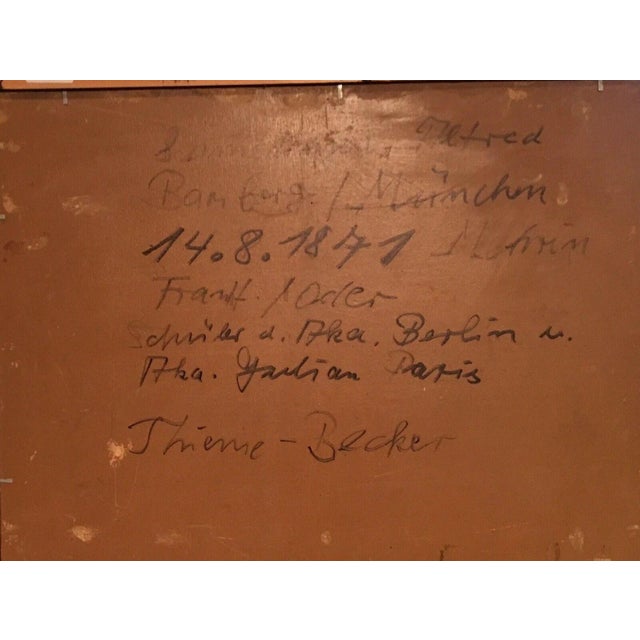 Alfred
Bamberg. / München
14.8.1871 Mohrin
Frankf. / Oder
Schüler d. Aka. Berlin u.
Aka. Julian Paris
Thieme - Becker